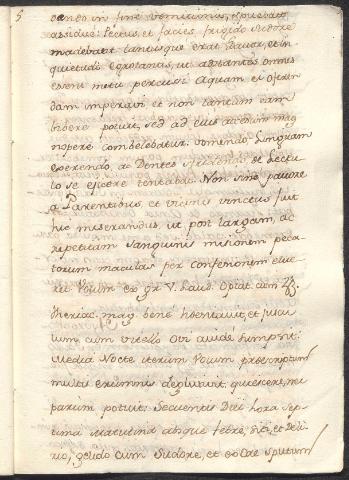 5
dando in fine vomitumus, et puebato
assidue: Lectus, et facies frigido sudore
madebat tantusque erat Pavor, et in
quietudo Egrotanis, ut abstantes omnes
essent metu percusi Aquam et Oferen
dam imperavi et non tantum eam
bibere potuit, sed ad eius accesum mag
nopere comdelebatur, vomendo, Linguam
exerendo, ac Dentes stridendo et Lectu
lo se ejicere tentabat. Non sine pavore
a Parentibus, et vicinis vinctus fuit
hic miserandus, ut post largam, ac
repetitam Sanguinis misionem peca
torum maculas per Confesionem elue
ret. Poium ex gr. V. Laud. Opiat. cum
theriac. mag. bene hoentavit, et juscu
lum cum vitello Ovi avide sumpsit.
Media Nocte iterum Poium prescriptum
multis exiumus deglutivit, quiescere, ni
parum potuit. Secuentis Diei hora Sep
tima matutina absque febre, siti, et Deli
rio, gelido cum Sudore, et ex Ore sputum